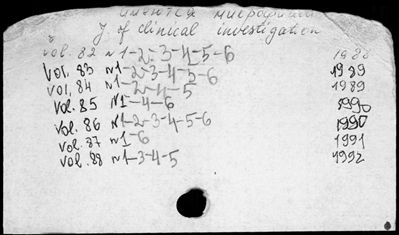 имеются микрофиши
J. of clinical investigation
vol. 82 N1-2-3-4-5-6 1988
vol. 83 N1-2-3-4-5-6 1989
vol. 84 N1-2-4-5 1989
vol. 85 N1-4-6 1990
vol. 86 N1-2-3-4-5-6 1990
vol. 87 N1-6 1991
vol. 88 N1-3-4-5 1992